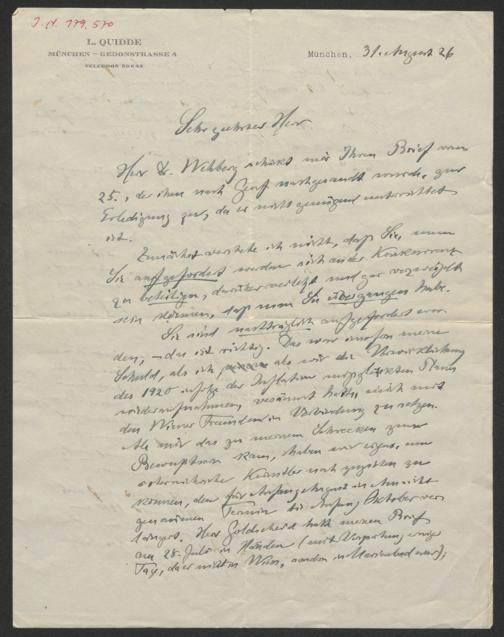 J. N. 179.570
L. QUIDDE
MÜNCHEN — GEDONSTRASSE 4
München, 31. August 26
Sehr geehrter Herr.
Herr Dr. Wehberg schickt mir Ihren Brief vom
25., der ihm nach Genf nachgesandt wurde, zur
Erledigung zu, da er nicht genügend unterrichtet
ist.
Zunächst verstehe ich nicht, daß Sie, wenn
Sie aufgefordert werden sich an der Konkurrenz
zu beteiligen, darüber verletzt und gar
sein können, daß man Sie übergangen habe.
Sie sind nachträglich aufgefordert wor-
den, – das ist richtig. Das war insofern meine
Schuld, als ich als wir die Verwirklichung
des 1920 infolge der Inflation Plans
wiederaufnahmen, versäumt hatte, mich mit
den Wiener Freunden in Verbindung zu setzen.
Als mir das zu meinem Schrecken zum
Bewußtsein kam, haben wir, um
österreichische Künstler noch zu
können, den für Anfang August in Aussicht
genommenen Termin bis Anfang Oktober ver-
längert. Herr Goldscheid hatte meinen Brief
am 28. Juli in Händen (mit Verspätung einige
Tage, da er nicht in Wien, sondern in Marienbad war),